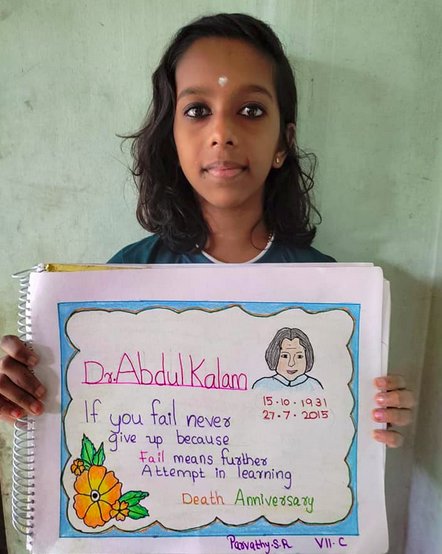 Dr. Abdul Kalam
15.10.1931
27.7.2015
If you fail never
give up because
Fail means further
Attempt in learning
Death Anniversary
Parvathy.S.R VII.C